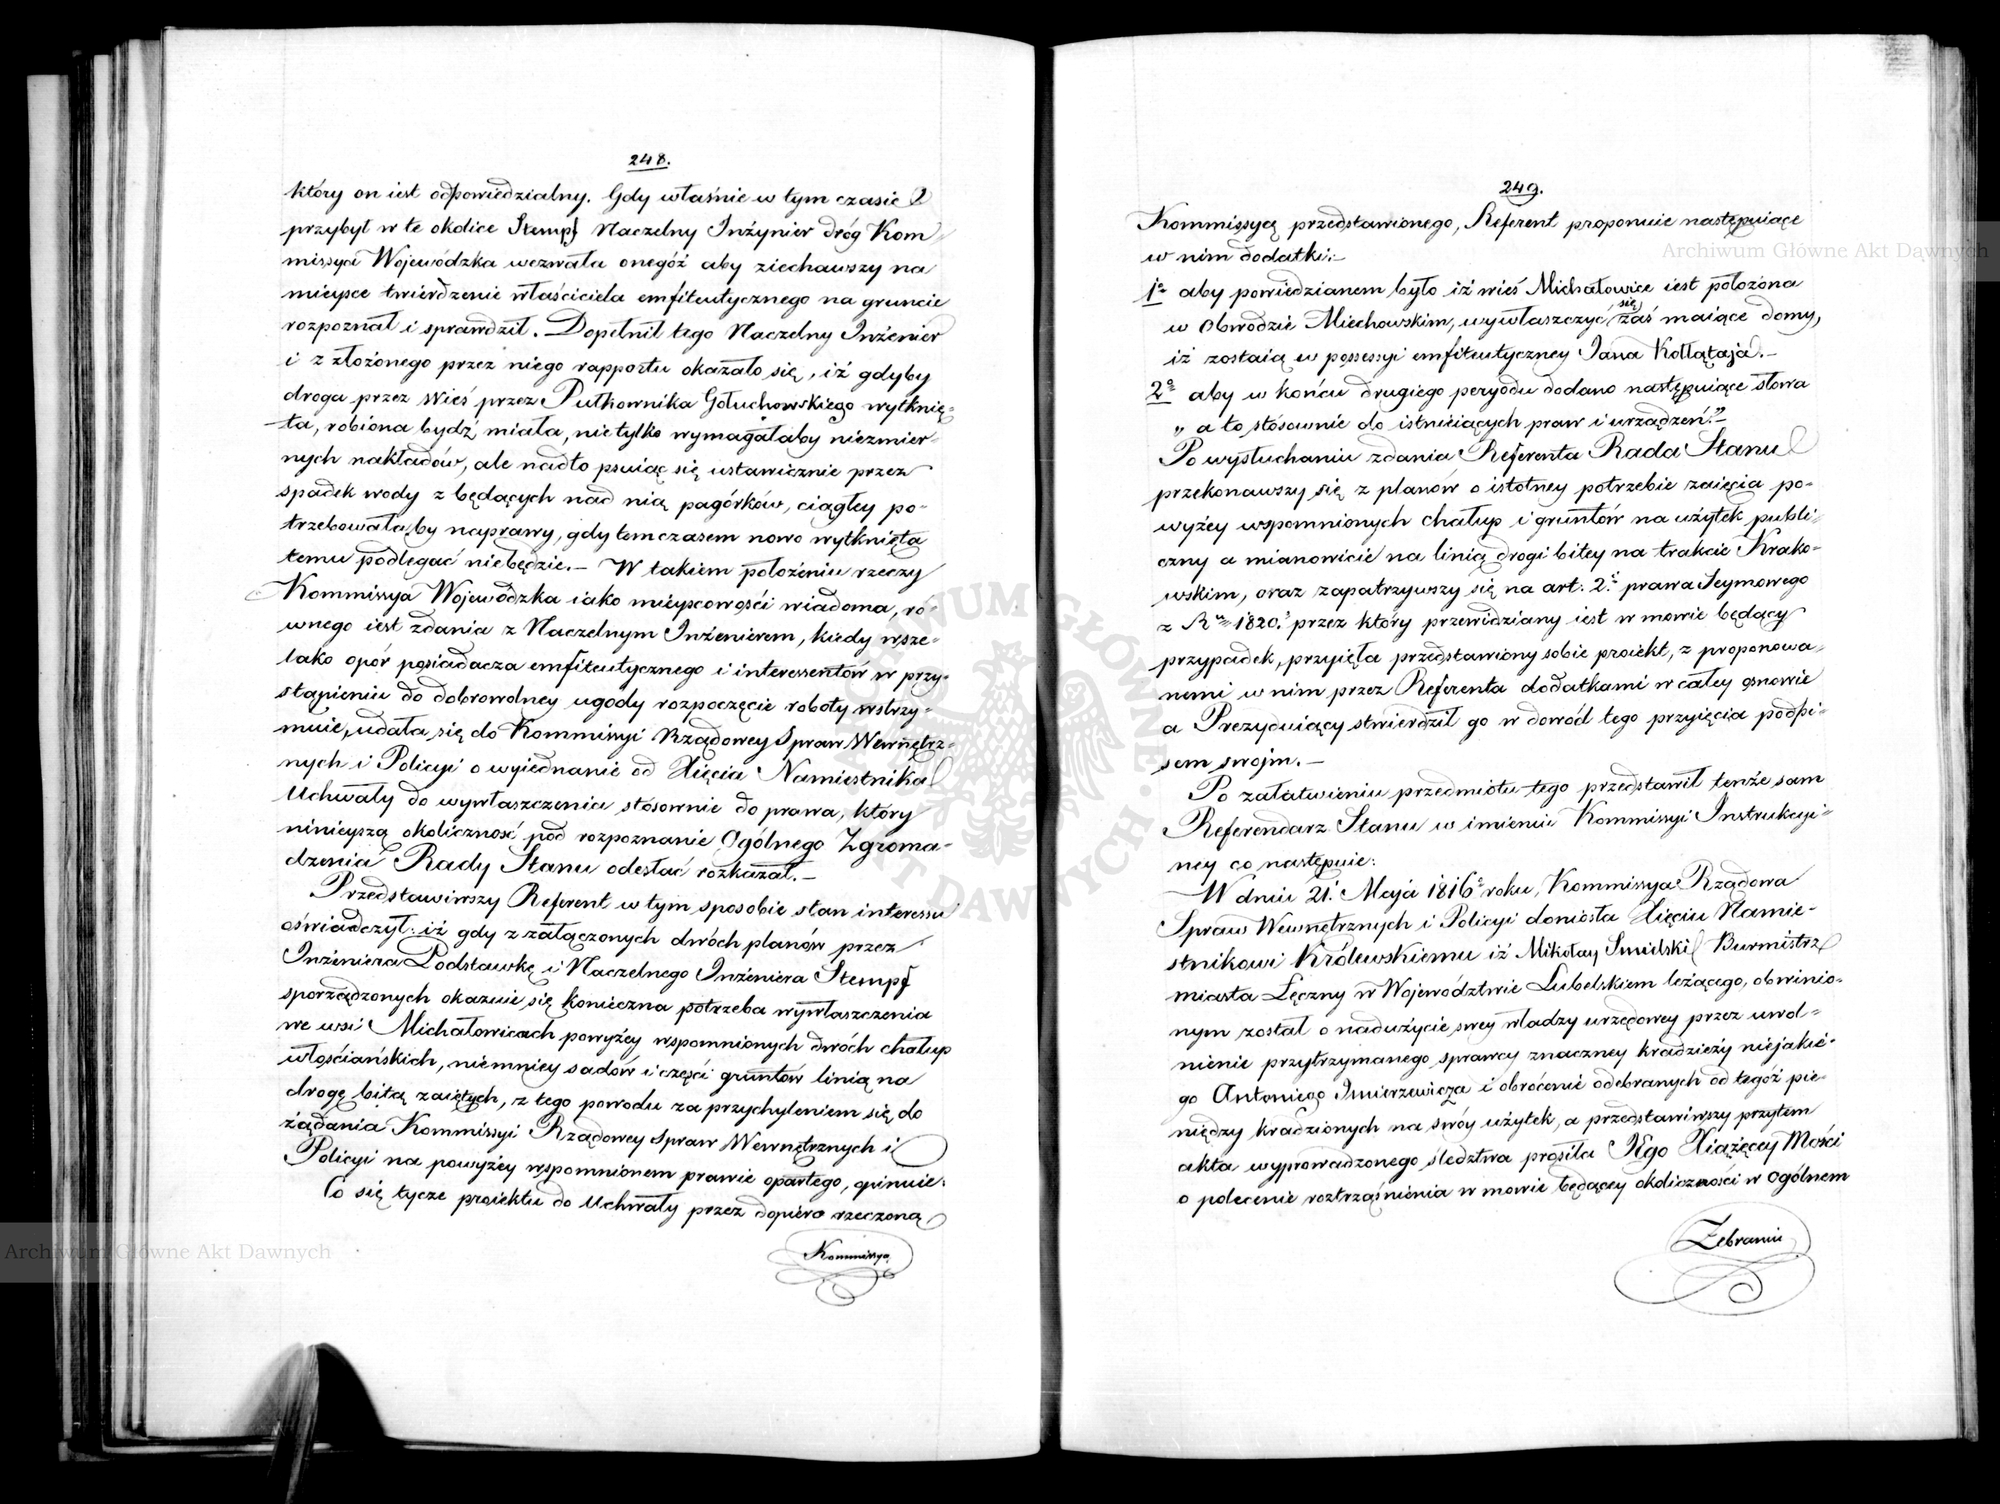 248.
który on iest odpowiedzialny. Gdy właśnie w tym czasie
przybył w te okolice Stempf Naczelny Inżynier dróg Kom-
missya Wojewódzka wezwała onegóż aby ziechawszy na
mieysce twierdzenie właściciela emfiteutycznego na gruncie
rozpoznał i sprawdził. Dopełnił tego Naczelny Inżenier
i z złożonego przez niego rapportu okazało się, iż gdyby
droga przez wieś przez Pułkownika Gołuchowskiego wytknię-
ta, robiona bydź miała, nie tylko wymagałaby niezmier-
nych nakładów, ale nadto psuiąc się ustawicznie przez
spadek wody z będących nad nią pagórków, ciągłey po-
trzebowałaby naprawy, gdy tem czasem nowo wytknięta
temu podlegać niebędzie.- W takiem położeniu rzeczy
Kommissya Wojewódzka iako mieyscowości wiadoma, ró-
wnego iest zdania z Naczelnym Inżenierem, kiedy wsze-
lako opór posiadacza emfiteutycznego i interessentów w przy-
stąpieniu do dobrowolney ugody rozpoczęcie roboty wstrzy-
muie, udała się do Kommissyi Rządowey Spraw Wewnętrz-
nych i Policyi o wyiednanie od Xięcia Namiestnika
Uchwały do wywłaszczenia stósownie do prawa, który
ninieyszą okoliczność pod rozpoznanie Ogólnego Zgroma-
dzenia Rady Stanu odesłać rozkazał.-
Przedstawiwszy Referent w tym sposobie stan interessu
oświadczył: iż gdy z załączonych dwóch planów przez
Inżeniera Podstawkę i Naczelnego Inżeniera Stempf
sporządzonych okazuie się konieczna potrzeba wywłaszczenia
we wsi Michałowicach powyżey wspomnionych dwóch chałup
włościańskich, niemniey sadów i części gruntów linią na
drogę bitą zaiętych, z tego powodu za przychyleniem się do
żądania Kommissyi Rządowey Spraw Wewnętrznych i
Policyi na powyżey wspomnionem prawie opartego, opiniuie.
Co się tycze proiektu do Uchwały przez dopiero rzeczoną
Kommissyą
249.
Kommissyą przedstawionego, Referent proponuie następuiące
w nim dodatki.-
1o aby powiedzianem było iż wieś Michałowice iest położona
w Obwodzie Miechowskim, wywłaszczyć się zaś maiące domy,
iż zostaią w possessyi emfiteutyczney Jana Kołłątaja.-
2o aby w końcu drugiego peryodu dodano następuiące słowa
„ a to stósownie do istnieiących praw i urządzeń."-
Po wysłuchaniu zdania Referenta Rada Stanu
przekonawszy się z planów o istotney potrzebie zaięcia po-
wyżey wspomnionych chałup i gruntów na użytek publi-
czny a mianowicie na linią drogi bitey na trakcie Krako-
wskim, oraz zapatrzywszy się na art: 2. prawa Seymowego
z R 1820. przez który przewidziany iest w mowie będący
przypadek, przyięła przedstawiony sobie proiekt, z proponowa-
nemi w nim przez Referenta dodatkami w całey osnowie
a Prezyduiący stwierdził go w dowód tego przyięcia podpi-
sem swojm.-
Po załatwieniu przedmiotu tego przedstawił tenże sam
Referendarz Stanu w imieniu Kommissyi Instrukcyi-
ney co następuie:
W dniu 21. Maja 1816 roku, Kommissya Rządowa
Spraw Wewnętrznych i Policyi doniosła Xięciu Namie-
stnikowi Królewskiemu iż Mikołay Smidski Burmistrz
miasta Łęczny w Województwie Lubelskiem leżącego, obwinio-
nym został o nadużycie swey władzy urzędowey przez uwol-
nienie przytrzymanego sprawcy znaczney kradzieży niejakie-
go Antoniego Imierzewicza i obrócenie odebranych od tegóż pie-
niędzy kradzionych na swóy użytek, a przedstawiwszy przytem
akta wyprowadzonego śledztwa prosiła Jego Xiążęcey Mości
o polecenie roztrząśnienia w mowie będącey okoliczności w Ogólnem
Zebraniu
Archiwum Główne Akt Dawnych
Archiwum Główne Akt Dawnych
ARCHIWUM GŁÓWNE AKT DAWNYCH